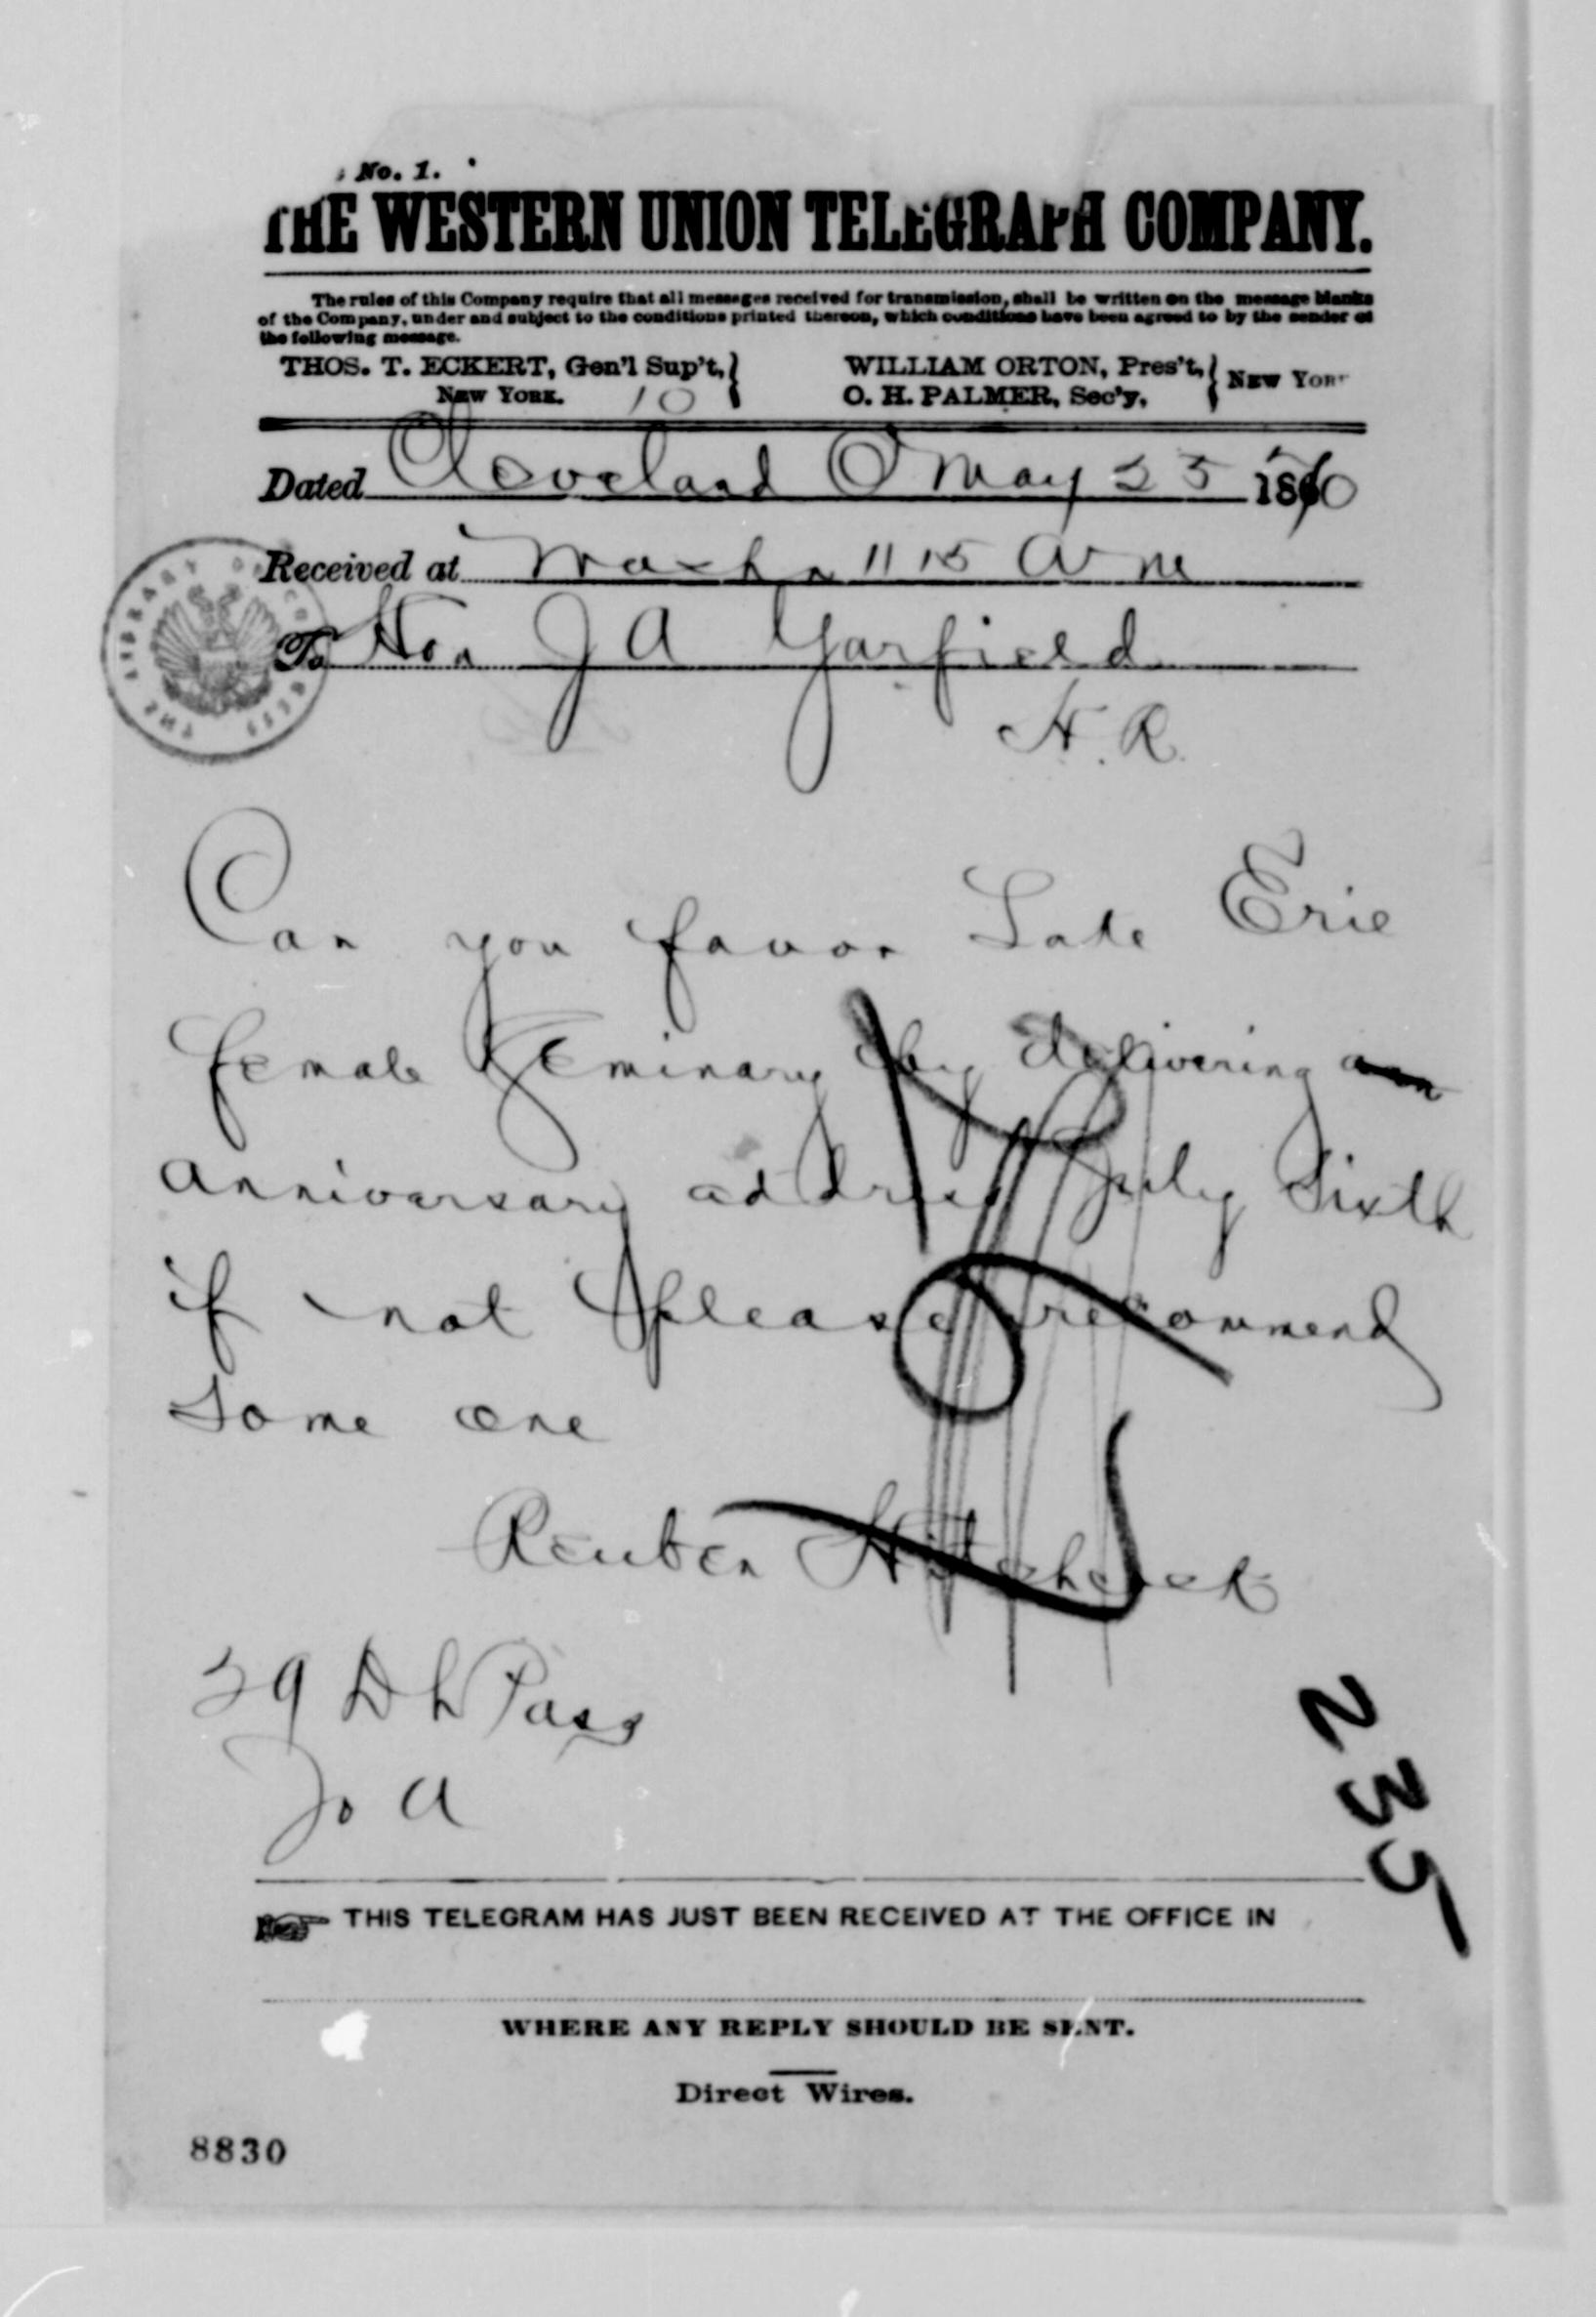 No. 1.
THE WESTERN UNION TELEGRAPH COMPANY.
The rules of this Company require that all messages received for transmission, shall be written on the message blanks
of the Company, under and subject to the conditions printed thereon, which conditions have been agreed to by the sender of
the following message.
THOS. T. ECKERT, Gen'l Sup't, WILLIAM ORTON, Pres't,
NEW YORK. 10 O. H. PALMER, Sec'y, NEW YORK
Dated Cleveland O May 25 1870
Received at Washn 11 15 a m
To Hon J A Garfield
H. R.
Can you favor Lake Erie
female Seminary by delivering
anniversary address July Sixth
if not please recommend
some one
Reuben Hitchcock
29 D h Pass
Jo a
THIS TELEGRAM HAS JUST BEEN RECEIVED AT THE OFFICE IN
WHERE ANY REPLY SHOULD BE SENT.
Direct Wires.
8830
235
THE LIBRARY OF CONGRESS